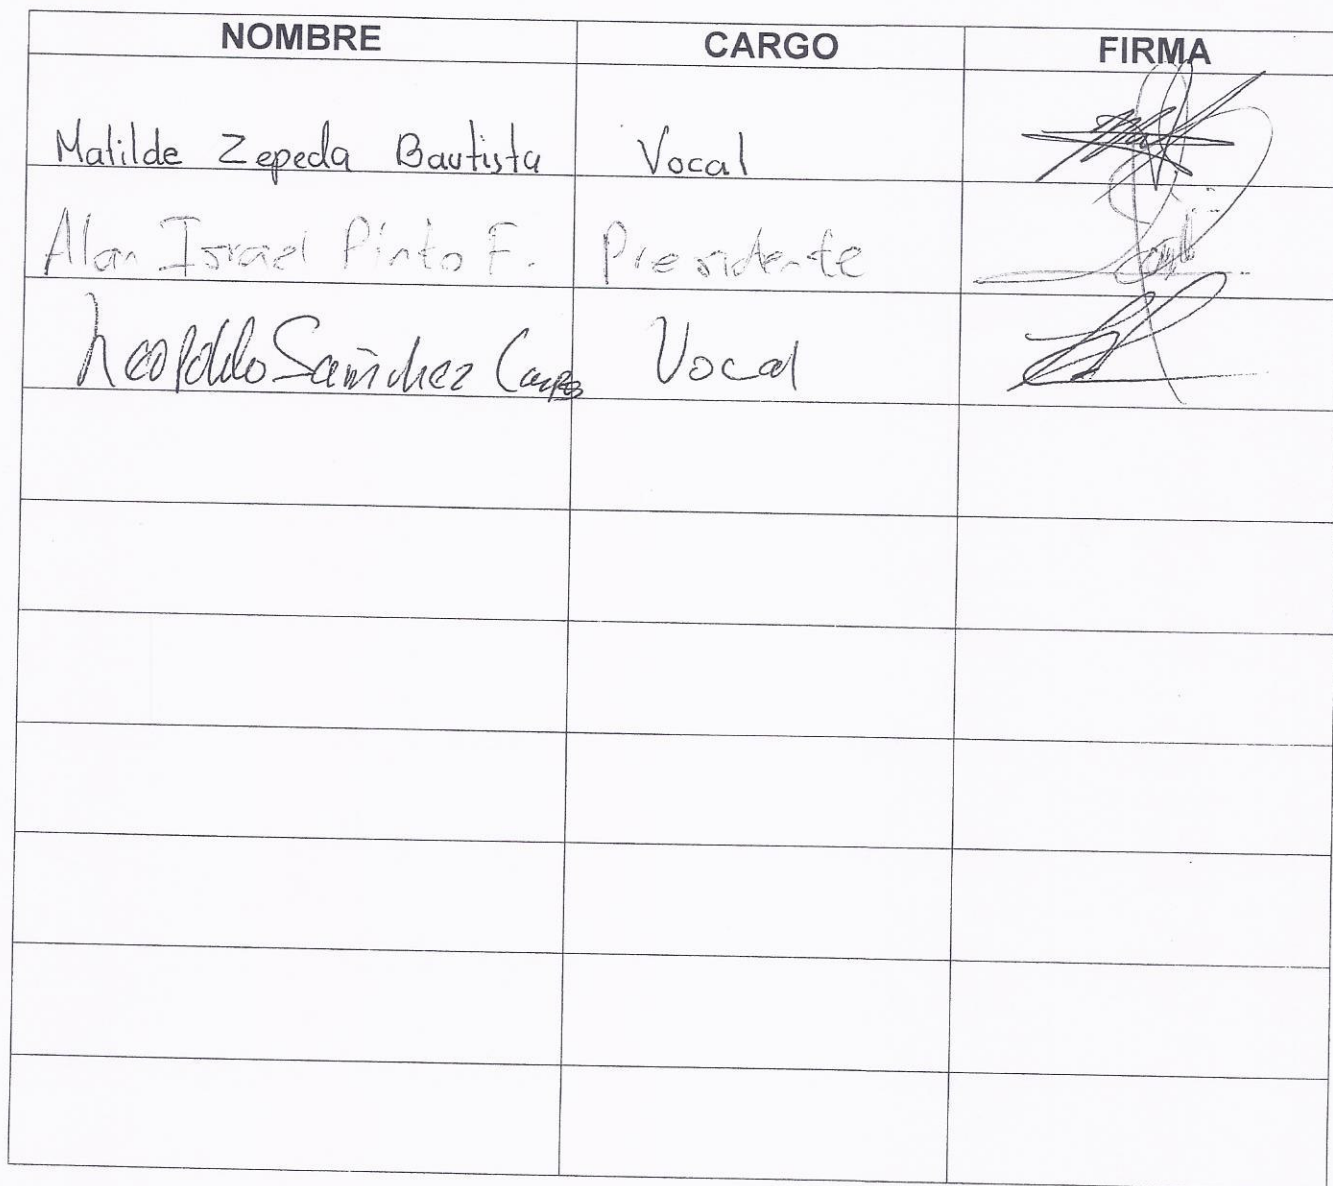 NOMBRE CARGO FIRMA
Matilde Zepeda Bautista Vocal
Alan Israel Pinto F. Presidente
Leopoldo Sanchez Vocal